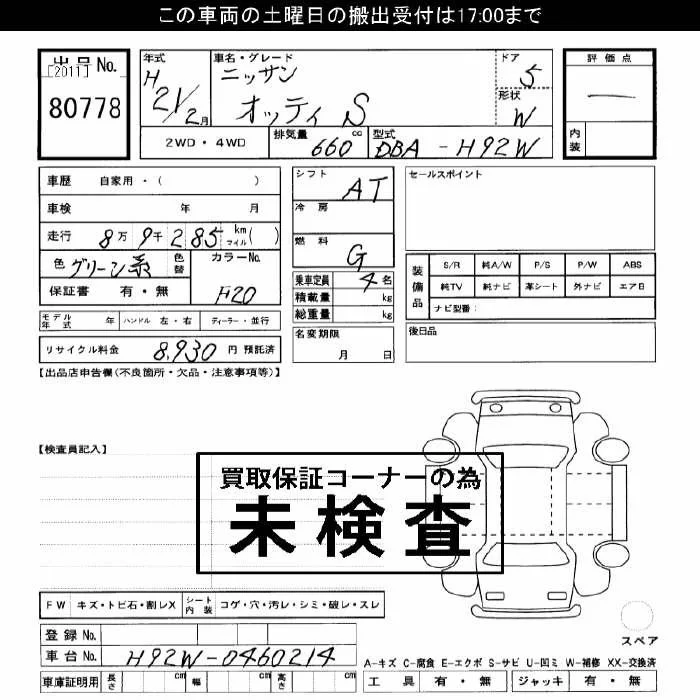 この車両の土曜日の搬出受付は17:00まで
出品 No.
[2011]
80778
年式
H21/2月
車名・グレード
ニッサン
オッティ S
ドア
5
形状
W
評価点
―
内装
2WD・4WD
排気量
660 cc
型式
DBA - H92W
車歴 自家用・( )
車検 年 月
走行 8万 9千 285 km マイル ( )
色 グリーン系
色替
カラーNo.
F20
保証書 有・無
モデル年式 年 ハンドル 左・右 ディーラー・並行
リサイクル料金 8,930 円 預託済
シフト
AT
冷房
燃料
G
乗車定員 4 名
積載量 kg
総重量 kg
名変期限
月 日
セールスポイント
装備品
S/R 純A/W P/S P/W ABS
純TV 純ナビ 革シート 外ナビ エアB
ナビ型番:
後日品
【出品店申告欄(不良箇所・欠品・注意事項等)】
【検査員記入】
買取保証コーナーの為
未検査
FW キズ・トビ石・割レX シート内装 コゲ・穴・汚レ・シミ・破レ・スレ
登録 No.
車台 No. H92W-0460214
車庫証明用 長さ cm 幅 cm 高さ cm
スペア
A-キズ C-腐食 E-エクボ S-サビ U-凹ミ W-補修 XX-交換済
工具 有・無 ジャッキ 有・無